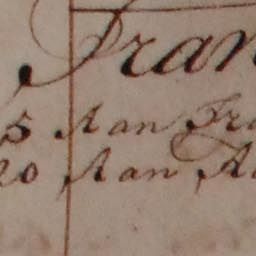 Fran
5 Aan Fra
20 Aan A